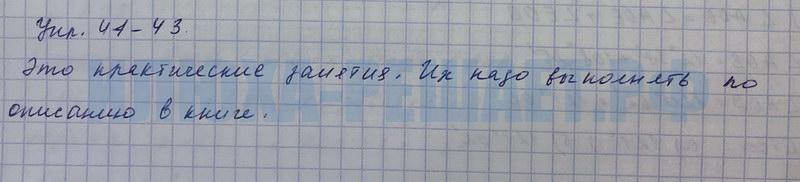 Упр. 41-43.
Это практические занятия. Их надо выполнять по
описанию в книге.